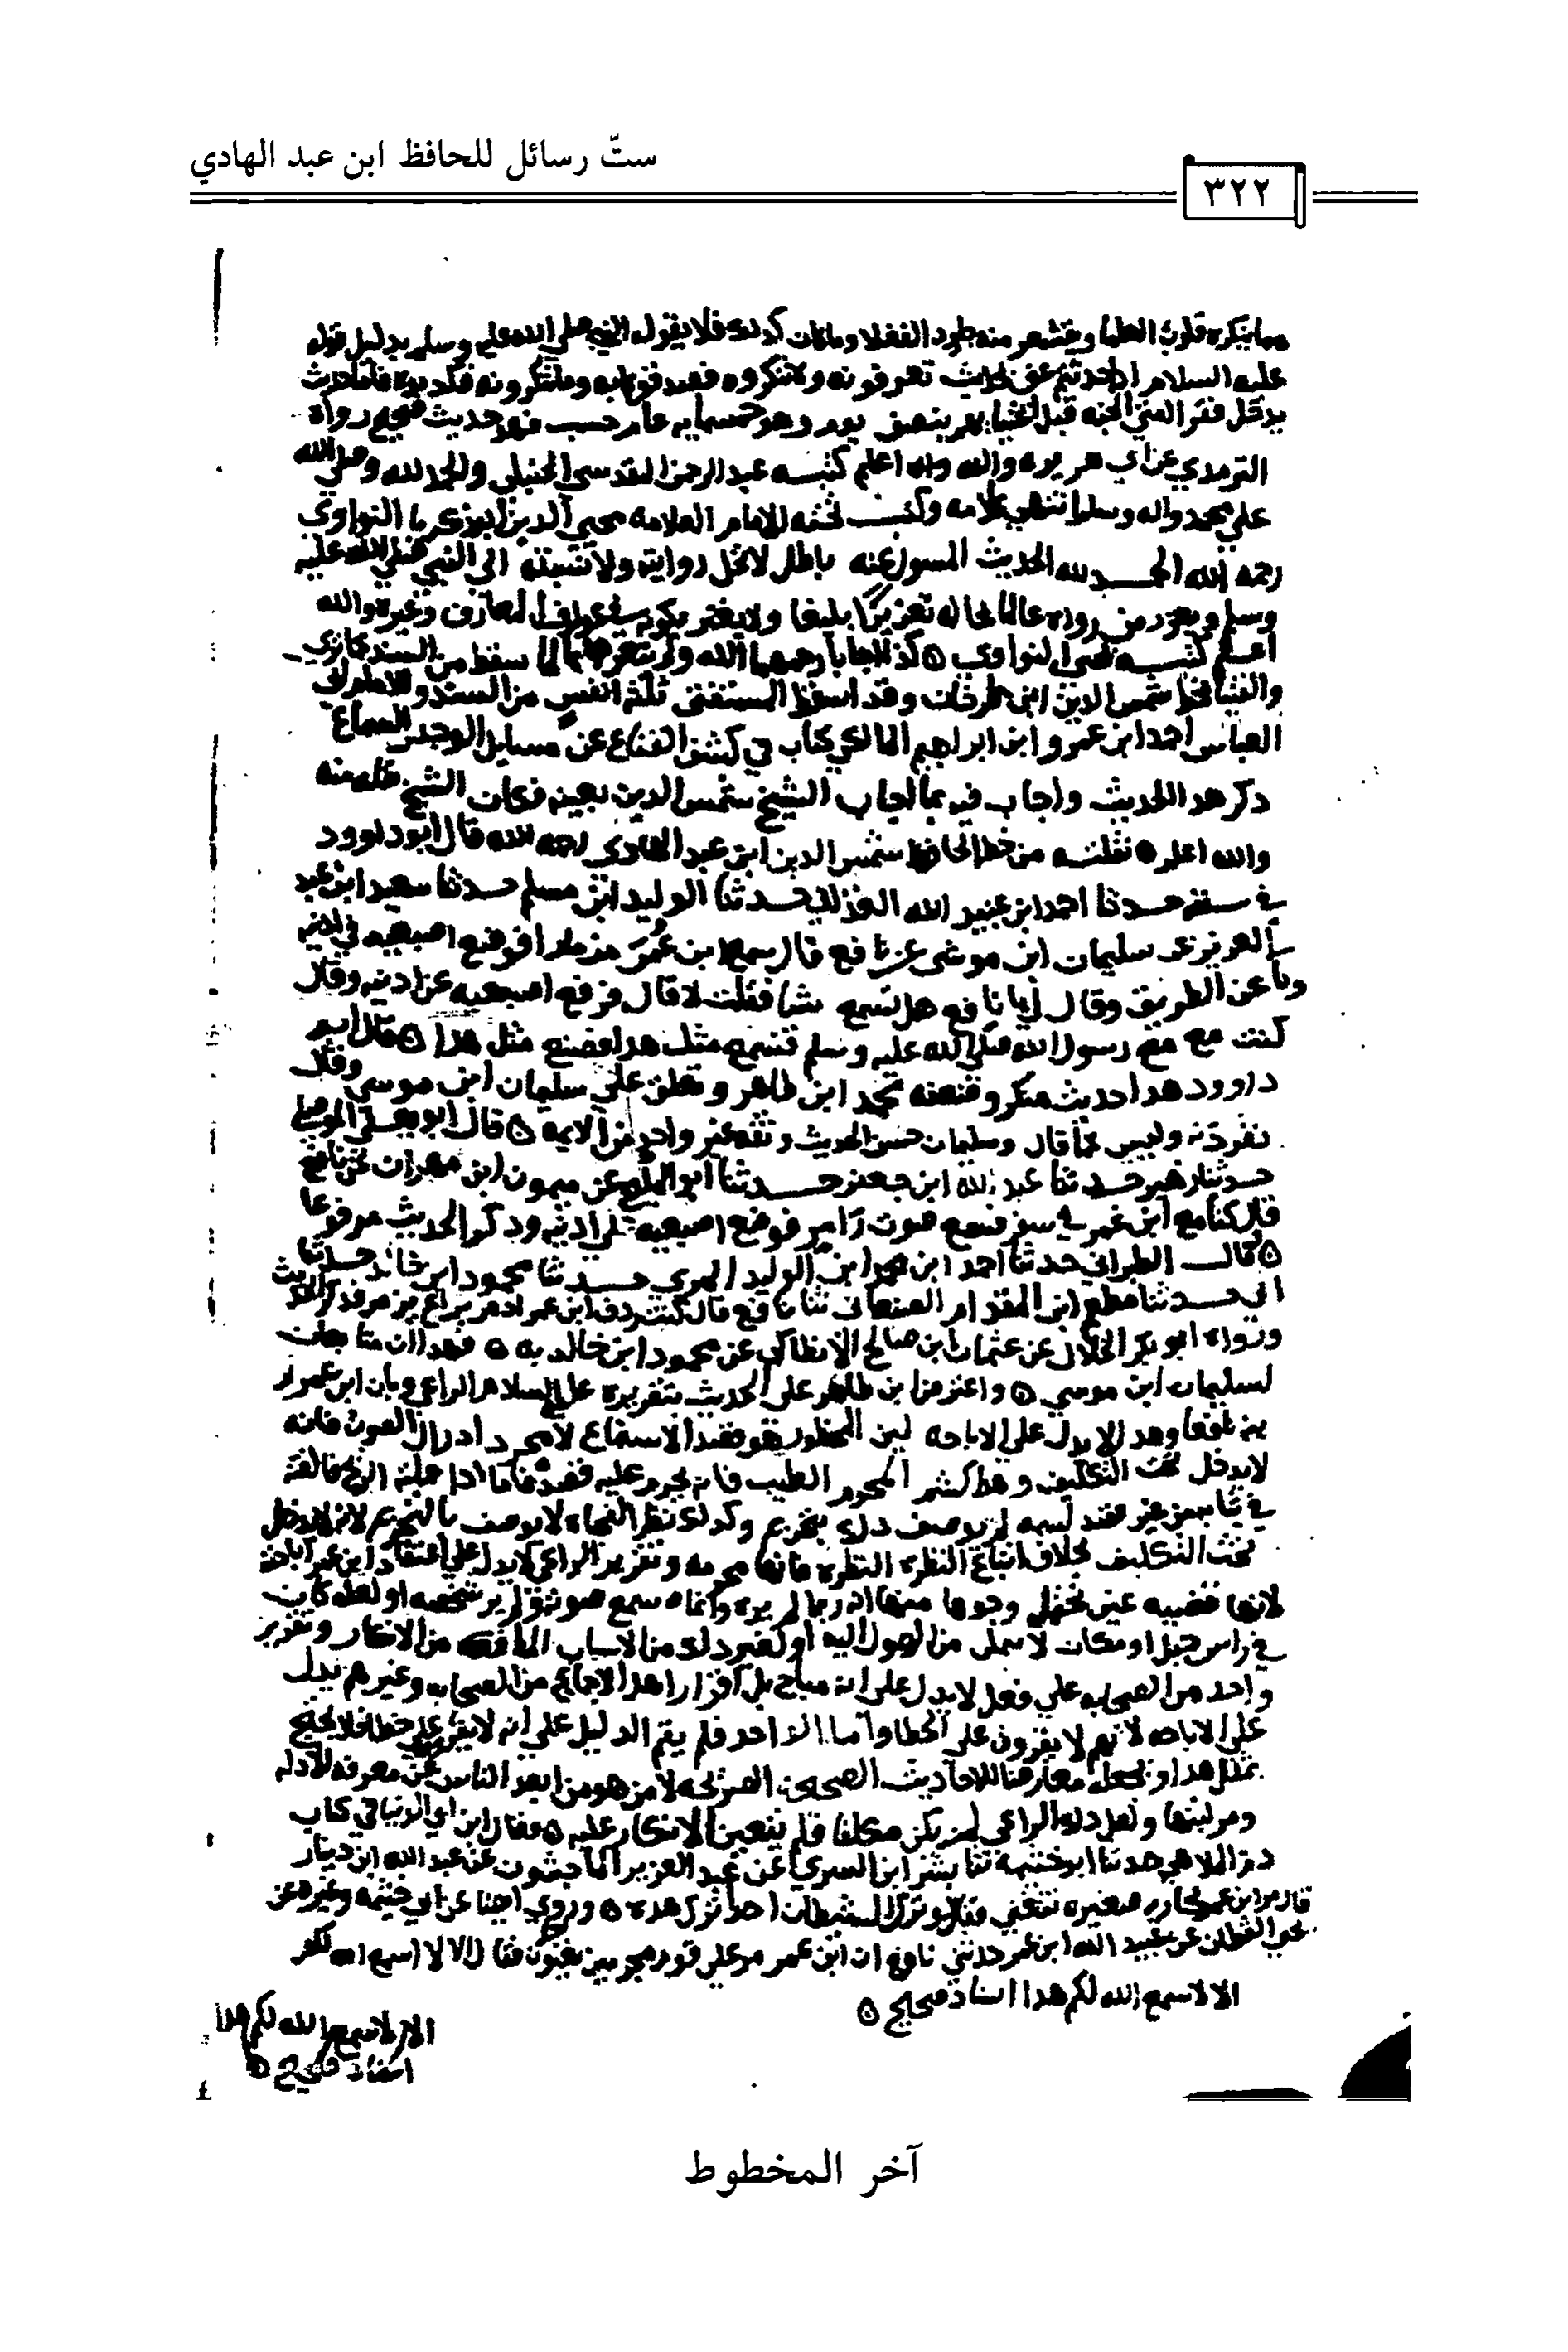 ستّ رسائل للحافظ ابن عبد الهادي
٣٢٢
مما ينكره قلوب العلما وتقشعر منه جلود الفضلا وما كان كذلك فلا يقوله النبي صلى الله عليه وسلم بدليل قوله
عليه السلام اذا حدثتم عني بحديث تعرفونه ولا تنكروه فصدقوا به وما تنكرونه فكذبوه فاما حديث
يدخل فقرا امتي الجنه قبل اغنيايهم بنصف يوم وهو خمسمايه عام حسب فهو حديث صحيح رواه
الترمدي عن ابي هريره والله اعلم كتبه عبد الرحمن المقدسي الحنبلي والحمد لله وصلى الله
على محمد واله وسلم انتهى كلامه وكتب تحته للامام العلامه محيي الدين ابو زكريا النواوي
رحمه الله الحمد لله الحديث المسول عنه باطل لا تحل روايته ولا نسبته الى النبي صلى الله عليه
وسلم ويعزر من رواه عالما بحاله تعزيرا بليغا ولا يغتر بكونه في عوارف المعارف وغيره والله
اعلم كتبه يحيى النواوي ٥ كذا اجابا رحمهما الله ولم يتعرضا لما سقط من السند كما تري
والفتيا بخط شمس الدين ابن طرخان وقد اسقط المستفتي ثلثه انفس من السند وللامام ابي
العباس احمد ابن عمر وابن ابراهيم المالكي كتاب في كشف القناع عن مسايل الوجد والسماع
دكر هدا الحديث واجاب فيه بما اجاب الشيخ شمس الدين بعينه فكان الشيخ نقله منه
والله اعلم ٥ نقلته من خط الحافظ شمس الدين ابن عبد الهادي رحمه الله قال ابو داوود
في سننه حدثنا احمد ابن عبيد الله الغداني حدثنا الوليد ابن مسلم حدثنا سعيد ابن عبد
العزيز عن سليمان ابن موسى عن نافع قال سمع ابن عمر مزمارا فوضع اصبعيه في ادنيه
ونأى عن الطريق وقال لي يا نافع هل تسمع شيا فقلت لا قال فرفع اصبعيه عن ادنيه وقال
كنت مع رسول الله صلى الله عليه وسلم فسمع مثل هدا فصنع مثل هدا ٥ قال ابو
داوود هدا حديث منكر وضعفه محمد ابن طاهر وتعلق على سليمان ابن موسى وقال
تفرد به وليس كما قال وسليمان حسن الحديث وثقه غير واحد من الايمه ٥ قال ابو يعلى الموصلي
حدثنا زهير حدثنا عبد الله ابن جعفر حدثنا ابو المليح عن ميمون ابن مهران عن نافع
قال كنا مع ابن عمر في سفر فسمع صوت زامر فوضع اصبعيه على ادنيه ودكر الحديث مرفوعا
٥ قال الطبراني حدثنا احمد ابن محمد ابن الوليد المري حدثنا محمود ابن خالد حدثنا
ابي حدثنا مطعم ابن المقدام الصنعاني ثنا نافع قال كنت ردف ابن عمر اد مر براع يزمر فدكر الحديث
ورواه ابو بكر الخلال عن عثمان ابن صالح الانطاكي عن محمود ابن خالد به ٥ فهدان متابعان
لسليمان ابن موسى ٥ واعترض ابن طاهر على الحديث بتقريره عليه السلام الراعي وبان ابن عمر لم
ينه نافعا وهدا لا يدل على الاباحه لان المحظور هو قصد الاستماع لا مجرد ادراك الصوت فانه
لا يدخل تحت التكليف وهدا كشم المحرم الطيب فانه يحرم عليه قصده فاما ادا حملته الريح فالقته
في ثيابه من غير قصد لشمه لم يوصف دلك بتحريم وكدلك نظر الفجاه لا يوصف بالتحريم لانه لا يدخل
تحت التكليف بخلاف اتباع النظره النظره فانها محرمه وتقرير الراعي لا يدل على اعتقاد ابن عمر اباحته
لانها قضيه عين تحتمل وجوها منها انه ربما لم يره وانما سمع صوته ولم ير شخصه او لعله كان
في راس جبل او مكان لا يتمكن من الوصول اليه او لغير دلك من الاسباب المانعه من الانكار وتقرير
واحد من الصحابه على فعل لا يدل على انه مباح بل اقرار اهل الاجماع من الصحابه وغيرهم يدل
على الاباحه لانهم لا يقرون على الخطا واما الواحد فلم يقم الدليل على انه لا يقر على خطا فلا يحتج
بمثل هدا ونجعله معارضا للاحاديث الصحيحه الصريحه الا من هو من ابعد الناس عن معرفه الادله
ومرتبتها ولعل دلك الراعي لم يكن مكلفا فلم يتعين الانكار عليه ٥ وقال ابن ابي الدنيا في كتاب
دم الملاهي حدثنا ابو خيثمه ثنا بشر ابن السري عن عبد العزيز الماجشون عن عبد الله ابن دينار
قال مر ابن عمر بجاريه صغيره تتغنى فقال لو ترك الشيطان احدا ترك هده ٥ وروى ايضا عن ابي خيثمه وغيره عن
يحيى القطان عن عبيد الله ابن عمر حدثني نافع ان ابن عمر مر على قوم محرمين يغنون فقال الا لا اسمع الله لكم
الا لا سمع الله لكم هدا اسناد صحيح ٥
الا لا سمع الله لكم هدا
اسناد صحيح ٥
٤
آخر المخطوط